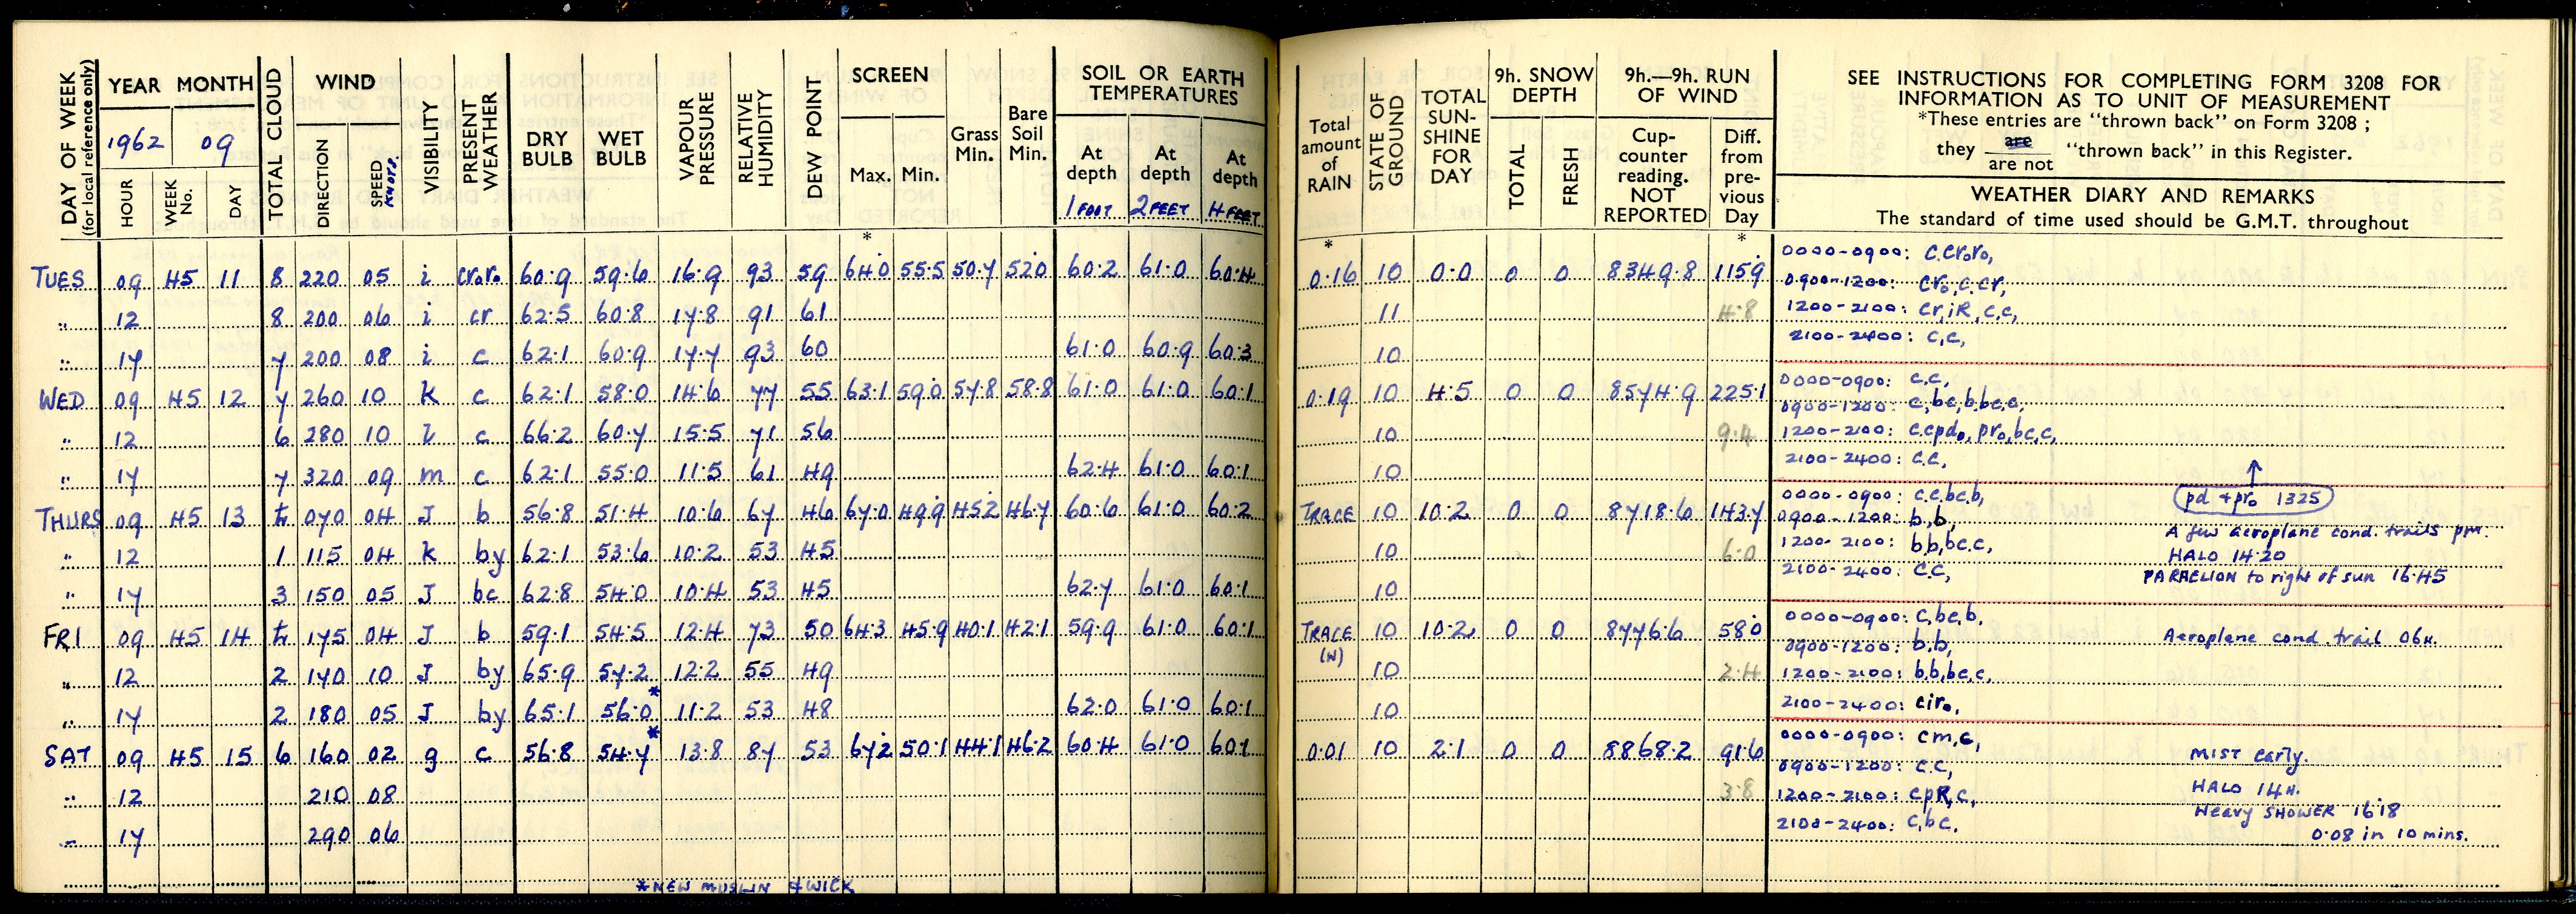 DAY OF WEEK
(for local reference only)
YEAR MONTH
1962 09
HOUR
WEEK No.
DAY
TOTAL CLOUD
WIND
DIRECTION
SPEED Knots.
VISIBILITY
PRESENT WEATHER
DRY BULB
WET BULB
VAPOUR PRESSURE
RELATIVE HUMIDITY
DEW POINT
SCREEN
Max. Min.
Grass Min.
Bare Soil Min.
SOIL OR EARTH TEMPERATURES
At depth At depth At depth
1 FOOT 2 FEET 4 FEET
Total amount of RAIN
STATE OF GROUND
TOTAL SUN-SHINE FOR DAY
9h. SNOW DEPTH
TOTAL
FRESH
9h.—9h. RUN OF WIND
Cup-counter reading. NOT REPORTED
Diff. from pre-vious Day
SEE INSTRUCTIONS FOR COMPLETING FORM 3208 FOR
INFORMATION AS TO UNIT OF MEASUREMENT
*These entries are "thrown back" on Form 3208 ;
they are / are not "thrown back" in this Register.
WEATHER DIARY AND REMARKS
The standard of time used should be G.M.T. throughout
* * *
TUES 09 45 11 8 220 05 i cr₀r₀ 60.9 59.6 16.9 93 59 64.0 55.5 50.7 52.0 60.2 61.0 60.4 0.16 10 0.0 0 0 8349.8 115.9
0000-0900: c.cr₀r₀,
0900-1200: cr₀,c.cr,
" 12 8 200 06 i cr 62.5 60.8 17.8 91 61 11 4.8
1200-2100: cr,iR,c,c,
" 17 7 200 08 i c 62.1 60.9 17.7 93 60 61.0 60.9 60.3 10
2100-2400: c,c,
WED 09 45 12 7 260 10 k c 62.1 58.0 14.6 77 55 63.1 59.0 57.8 58.8 61.0 61.0 60.1 0.19 10 4.5 0 0 8574.9 225.1
0000-0900: c.c,
0900-1200: c,bc,b,bc,c,
" 12 6 280 10 l c 66.2 60.7 15.5 71 56 10 9.4
1200-2100: c.cpd₀,pr₀,bc,c,
" 17 7 320 09 m c 62.1 55.0 11.5 61 49 62.4 61.0 60.1 10
2100-2400: c.c,
pd + pr₀ 1325
THURS 09 45 13 t 070 04 J b 56.8 51.4 10.6 67 46 67.0 49.9 45.2 46.7 60.6 61.0 60.2 TRACE 10 10.2 0 0 8718.6 143.7
0000-0900: c.c,bc,b,
0900-1200: b,b,
A few aeroplane cond. trails pm.
" 12 1 115 04 k by 62.1 53.6 10.2 53 45 10 6.0
1200-2100: b,b,bc,c,
HALO 14.20
" 17 3 150 05 J bc 62.8 54.0 10.4 53 45 62.7 61.0 60.1 10
2100-2400: c.c,
PARAELION to right of sun 16.45
FRI 09 45 14 t 175 04 J b 59.1 54.5 12.4 73 50 64.3 45.9 40.1 42.1 59.9 61.0 60.1 TRACE (W) 10 10.2 0 0 8776.6 58.0
0000-0900: c,bc,b,
0900-1200: b.b,
Aeroplane cond. trail 06H.
" 12 2 140 10 J by 65.9 57.2 12.2 55 49 10 2.4
1200-2100: b,b,bc,c,
" 17 2 180 05 J by 65.1 56.0* 11.2 53 48 62.0 61.0 60.1 10
2100-2400: cir₀,
SAT 09 45 15 6 160 02 g c 56.8 54.7* 13.8 87 53 67.2 50.1 44.1 46.2 60.4 61.0 60.1 0.01 10 2.1 0 0 8868.2 91.6
0000-0900: cm,c,
0900-1200: c.c,
MIST early.
" 12 210 08 3.8
1200-2100: cpR,c,
HALO 14H.
Heavy SHOWER 1618
" 17 290 06
2100-2400: c,bc.
0.08 in 10 mins.
*NEW MUSLIN & WICK